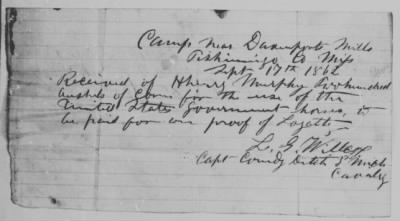 Camp Near Davenports Mills
Tishimingo Co Miss
Sept 17th 1862
Received of Henry Murphy Two hundred
bushels of Corn for the use of the
United States government horses, to
be paid for on proof of Loyalty
L. G. Wilcox
Capt Comdg Detch 3d Mich
Cavalry